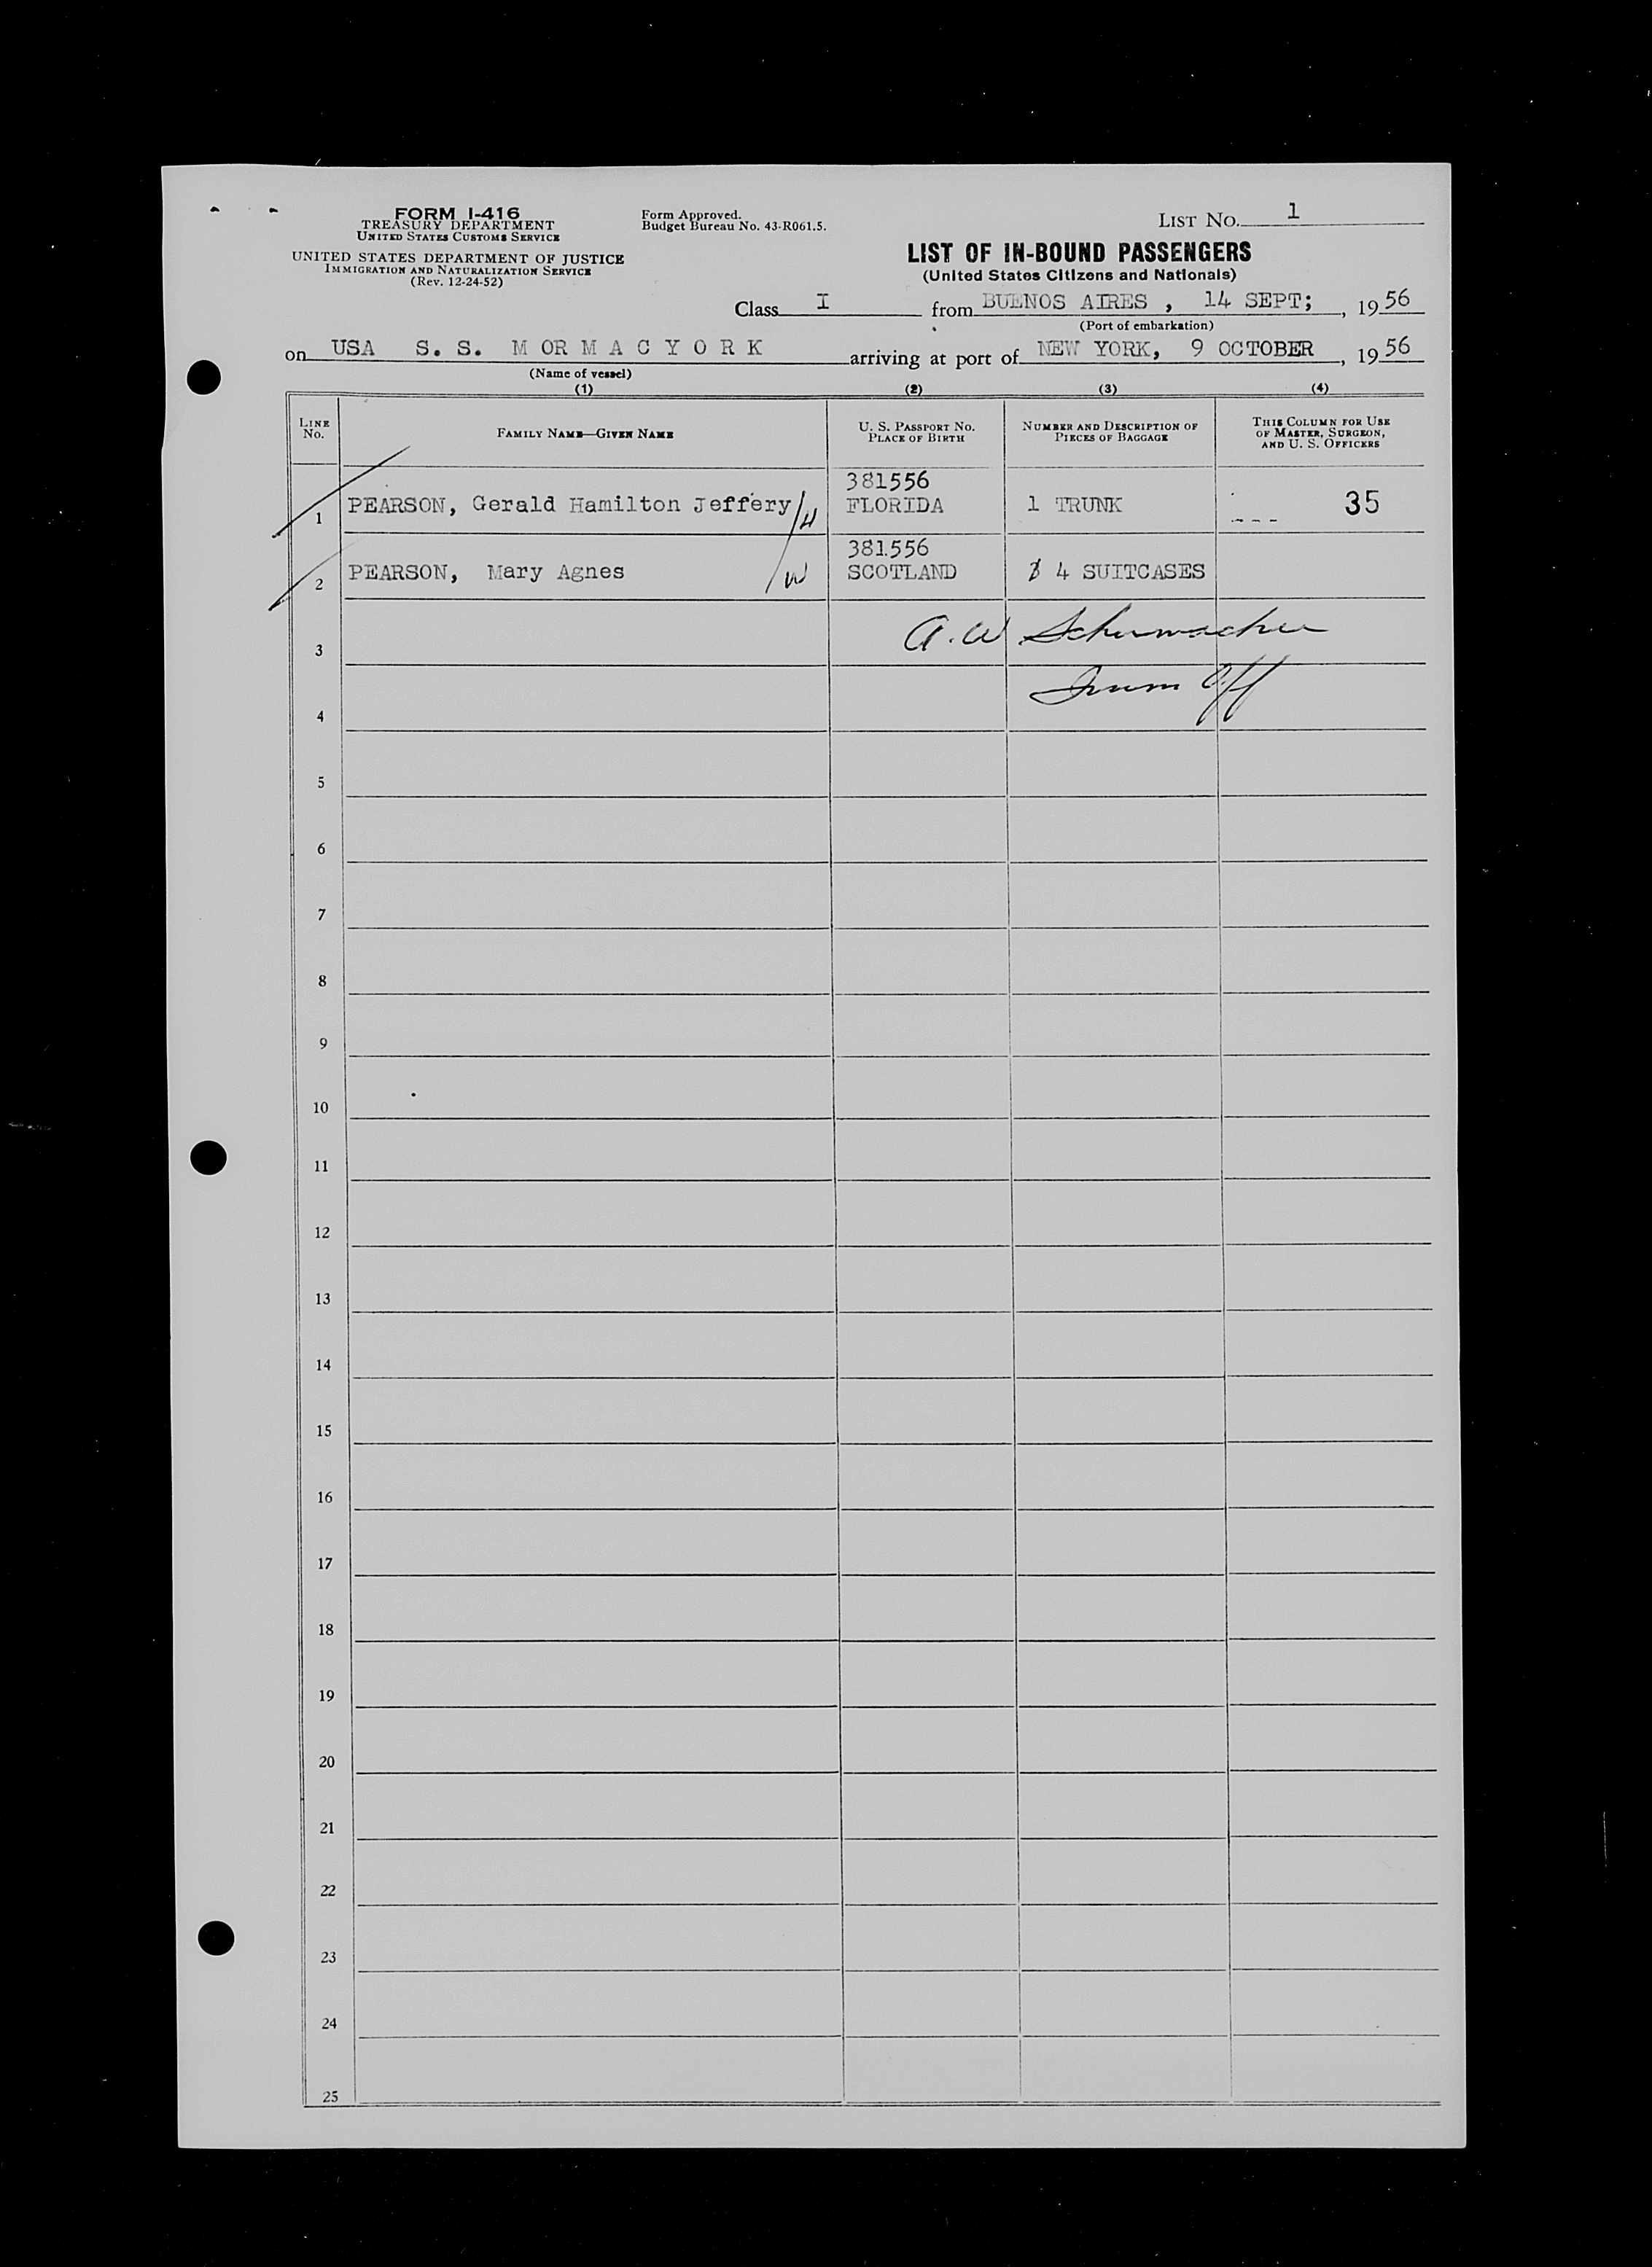 FORM I-416
TREASURY DEPARTMENT
UNITED STATES CUSTOMS SERVICE
UNITED STATES DEPARTMENT OF JUSTICE
IMMIGRATION AND NATURALIZATION SERVICE
(Rev. 12-24-52)
Form Approved.
Budget Bureau No. 43-R061.5.
LIST NO. 1
LIST OF IN-BOUND PASSENGERS
(United States Citizens and Nationals)
Class I from BUENOS AIRES , 14 SEPT; , 1956
(Port of embarkation)
on USA S. S. M OR M A C Y O R K arriving at port of NEW YORK, 9 OCTOBER , 1956
(Name of vessel)
(1) (2) (3) (4)
LINE NO. FAMILY NAME—GIVEN NAME U. S. PASSPORT NO. PLACE OF BIRTH NUMBER AND DESCRIPTION OF PIECES OF BAGGAGE THIS COLUMN FOR USE OF MASTER, SURGEON, AND U. S. OFFICERS
381556
1 PEARSON, Gerald Hamilton Jeffery /H FLORIDA 1 TRUNK --- 35
381556
2 PEARSON, Mary Agnes /W SCOTLAND 4 SUITCASES
3 A. W Schumacher
4 Imm Off
5
6
7
8
9
10
11
12
13
14
15
16
17
18
19
20
21
22
23
24
25